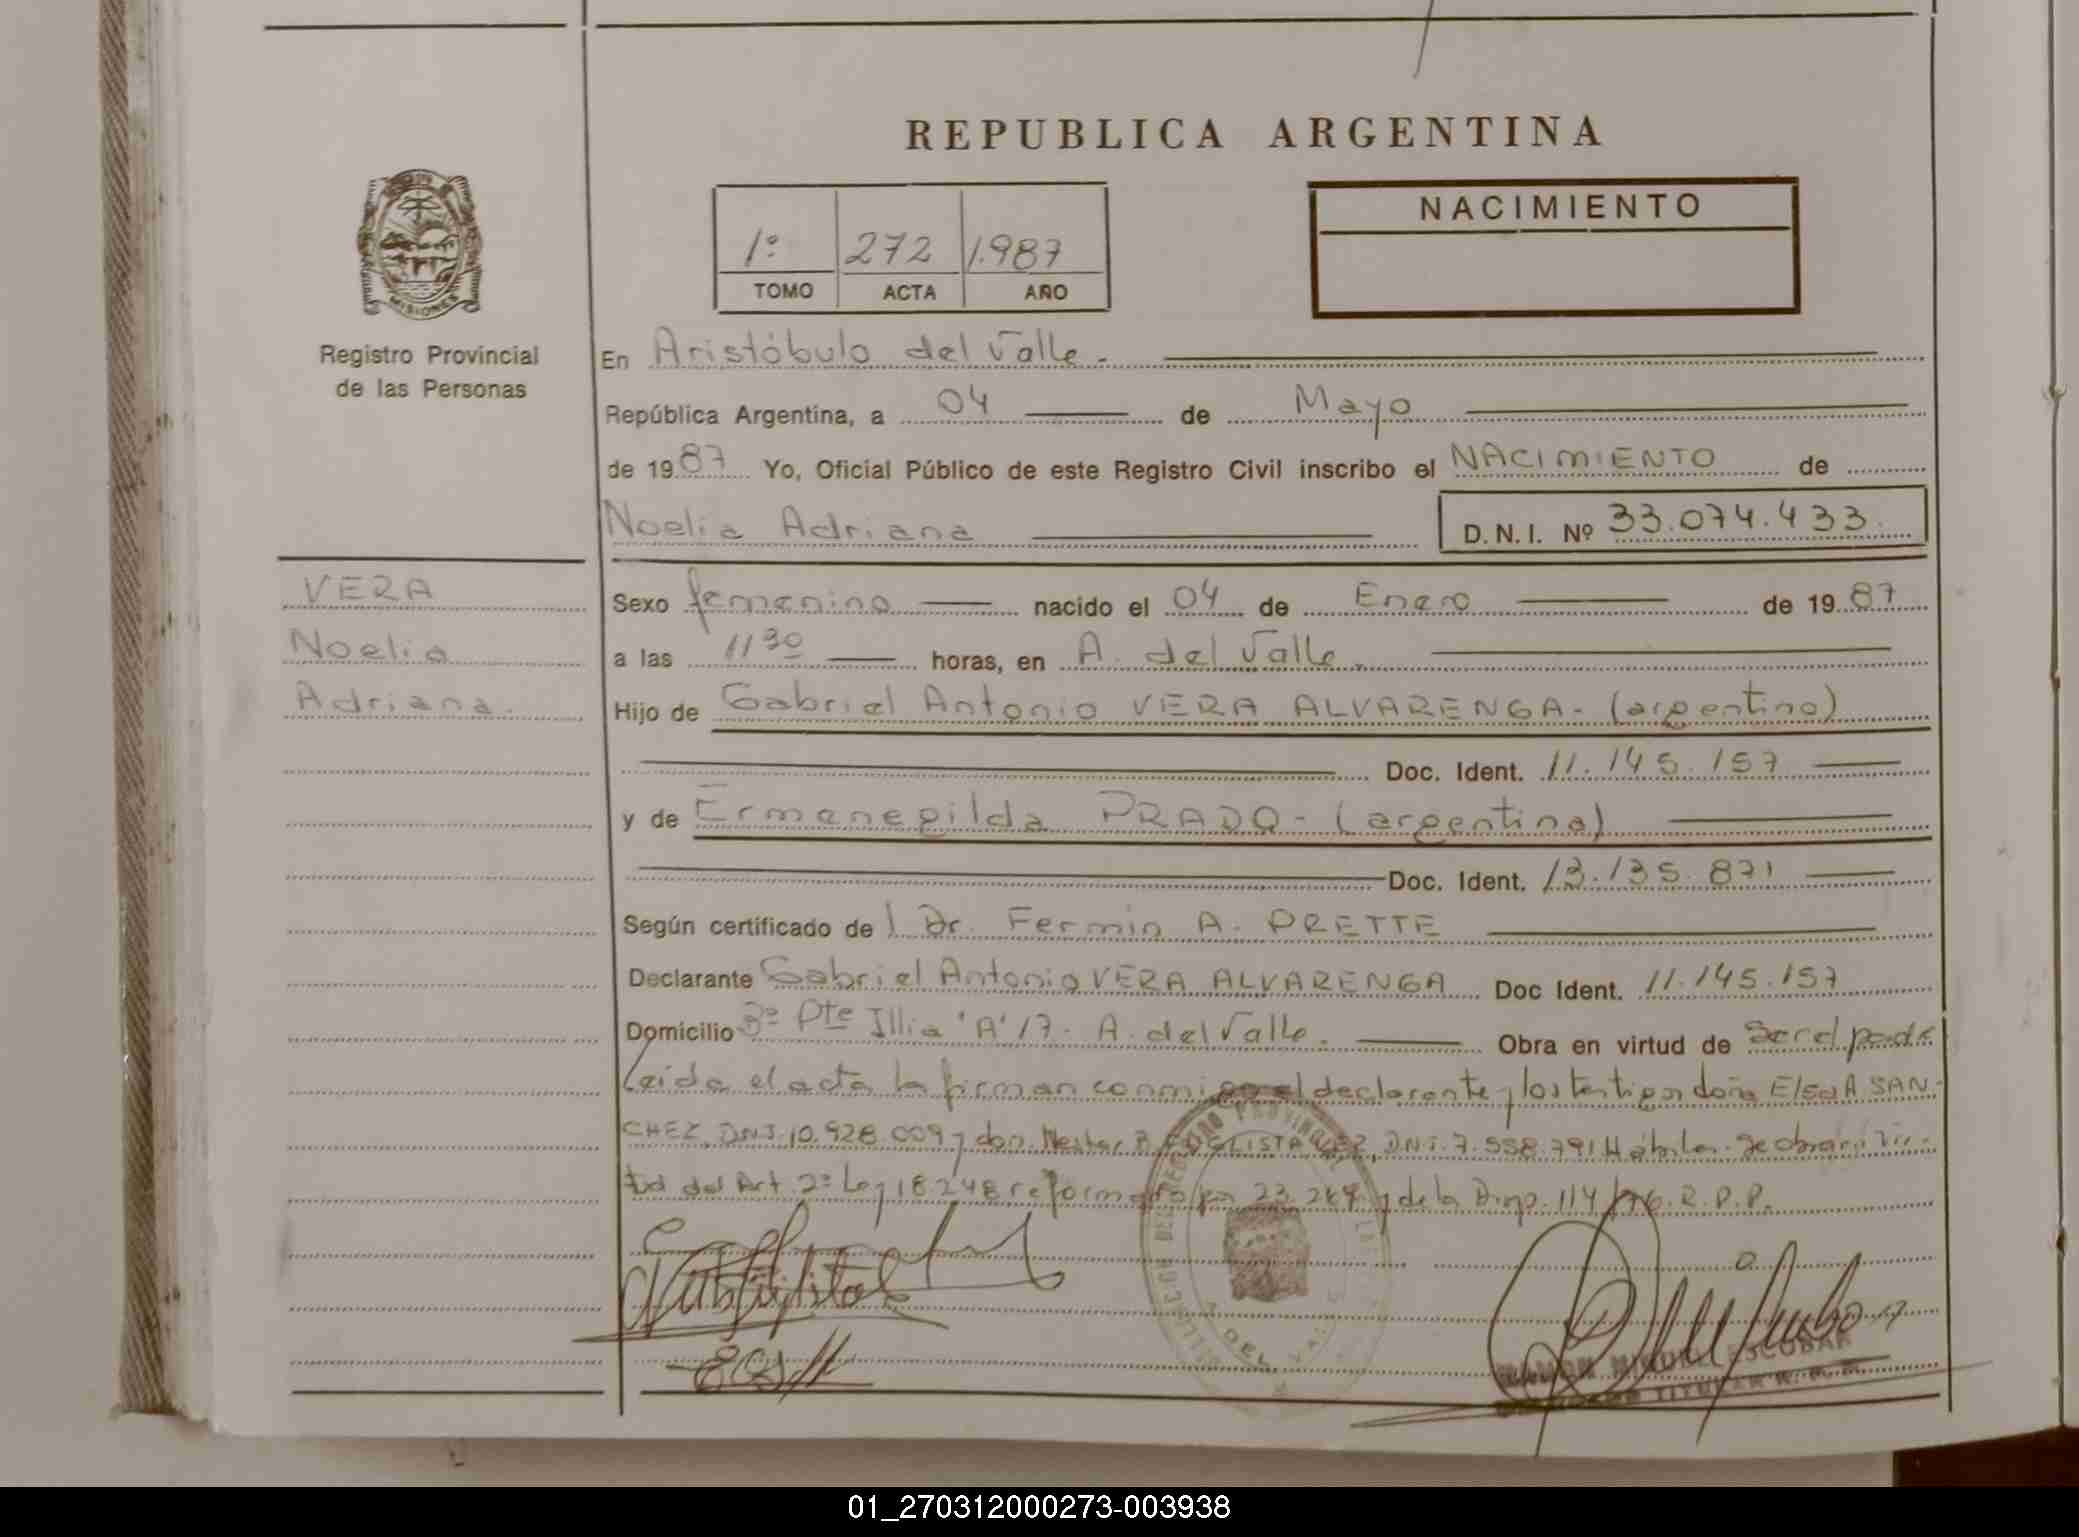 REPUBLICA ARGENTINA
MISIONES
Registro Provincial
de las Personas
1º 272 1.987
TOMO ACTA AÑO
NACIMIENTO
En Aristóbulo del Valle.-
República Argentina, a 04 de Mayo
de 1987 Yo, Oficial Público de este Registro Civil inscribo el NACIMIENTO de
Noelia Adriana D.N.I. Nº 33.074.433.
VERA
Noelia
Adriana.
Sexo femenino nacido el 04 de Enero de 1987
a las 11 30 horas, en A. del Valle.
Hijo de Gabriel Antonio VERA ALVARENGA- (argentino)
Doc. Ident. 11.145.157
y de Ermenegilda PRADO- (argentina)
Doc. Ident. 13.135.871
Según certificado de l Dr. Fermin A. PRETTE
Declarante Gabriel Antonio VERA ALVARENGA Doc Ident. 11.145.157
Domicilio Bº Pte Illia 'A' 17- A. del Valle. Obra en virtud de ser el padre
Leida el acta la firman conmigo el declarante y los testigos doña Elsa A SAN-
CHEZ, DNI. 10.928.009 y don Nestor B. DNI. 7.558.791 Hábiles- Se obra
tud del Art. 2º Ley 18248 reformado por 23.264 y de la Disp. 114/76. R.P.P.
RAMON MIGUEL ESCOBAR
TITULAR
01_270312000273-003938